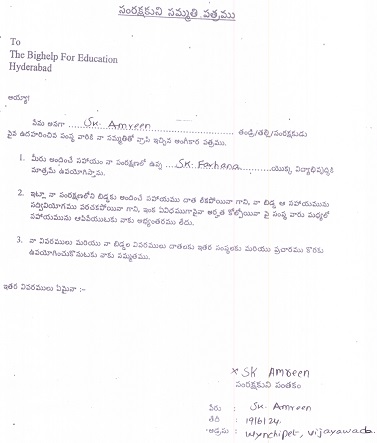 సంరక్షకుని సమ్మతి పత్రము
To
The Bighelp For Education
Hyderabad
అయ్యా!
నేను అనగా ........ SK. Amreen ........ తండ్రి/తల్లి/సంరక్షకుడు
పైన ఉదహరించిన సంస్థ వారికి నా సమ్మతితో వ్రాసి ఇచ్చిన అంగీకార పత్రము.
1. మీరు అందించే సహాయం నా సంరక్షణలో ఉన్న ..... SK. Farhana ..... యొక్క విద్యాభివృద్ధికి
మాత్రమే ఉపయోగిస్తాను.
2. ఇట్లా నా సంరక్షణలోని బిడ్డకు అందించే సహాయము దాత లేకపోయినా గాని, నా బిడ్డ ఆ సహాయమును
సద్వినియోగము పరచకపోయినా గాని, ఇంక ఏవిధముగానైనా అర్హత కోల్పోయినా పై సంస్థ వారు మధ్యలో
సహాయమును ఆపివేయుటకు నాకు అభ్యంతరము లేదు.
3. నా వివరములు మరియు నా బిడ్డల వివరములు దాతలకు ఇతర సంస్థలకు మరియు ప్రచారము కొరకు
ఉపయోగించుకొనుటకు నాకు సమ్మతము.
ఇతర వివరములు ఏమైనా :-
x SK Amreen
సంరక్షకుని సంతకం
పేరు : SK. Amreen
తేది : 19/6/24.
అడ్రసు : Wynchipet, Vijayawada.